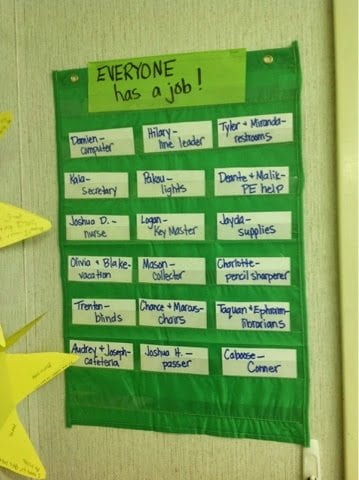 EVERYONE
has a job!
Damien-
computer
Hilary-
line leader
Tyler + Miranda-
restrooms
Kala-
secretary
Pakou-
lights
Deante & Malik-
PE help
Joshua D.-
nurse
Logan-
Key Master
Jayda-
supplies
Olivia & Blake-
vacation
Mason-
collector
Charlotte-
pencil sharpener
Trenton-
blinds
Chance & Marcus-
chairs
Taquan & Ephraim-
librarians
Audrey & Joseph-
cafeteria
Joshua H.-
passer
Caboose-
Conner